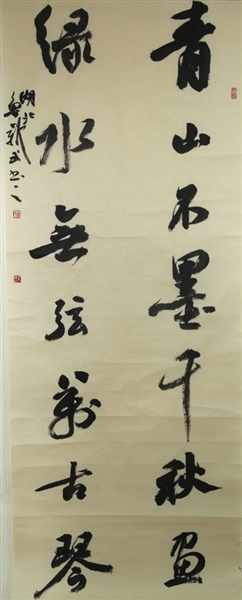 青山不墨千秋画
绿水無弦萬古琴
湖北